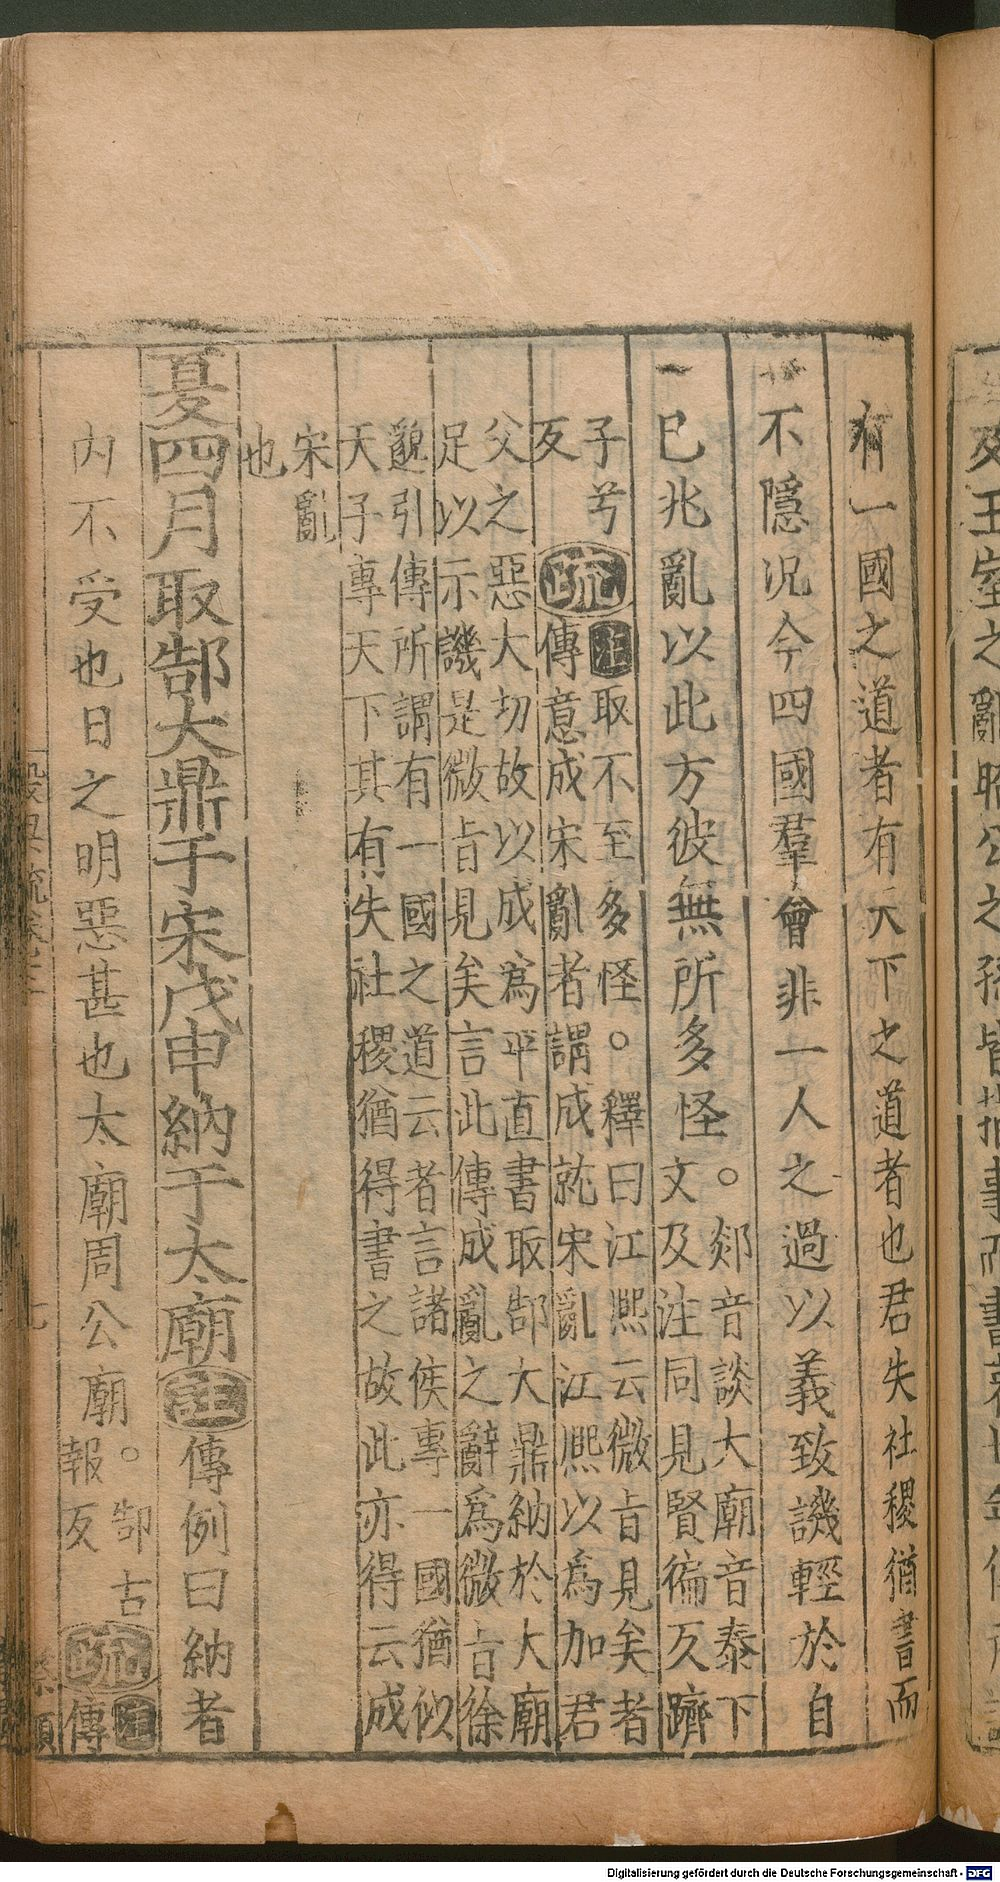 有一國之道者有天下之道者也君失社稷猶書而
不隱況今四國羣會非一人之過以義致譏輕於自
已兆亂以此方彼無所多怪。郯音談大廟音泰下
文及注同見賢徧反躋
子兮
反
疏
注取不至多怪。釋曰江熙云微旨見矣者
傳意成宋亂者謂成就宋亂江熙以為加君
父之惡大切故以成為平直書取郜大鼎納於大廟
足以示譏是微旨見矣言此傳成亂之辭為微旨徐
邈引傳所謂有一國之道云者言諸侯專一國猶似
天子專天下其有失社稷猶得書之故此亦得云成
宋亂
也
夏四月取郜大鼎于宋戊申納于太廟註傳例曰納者
內不受也日之明惡甚也太廟周公廟。郜古
報反
疏
注
傳